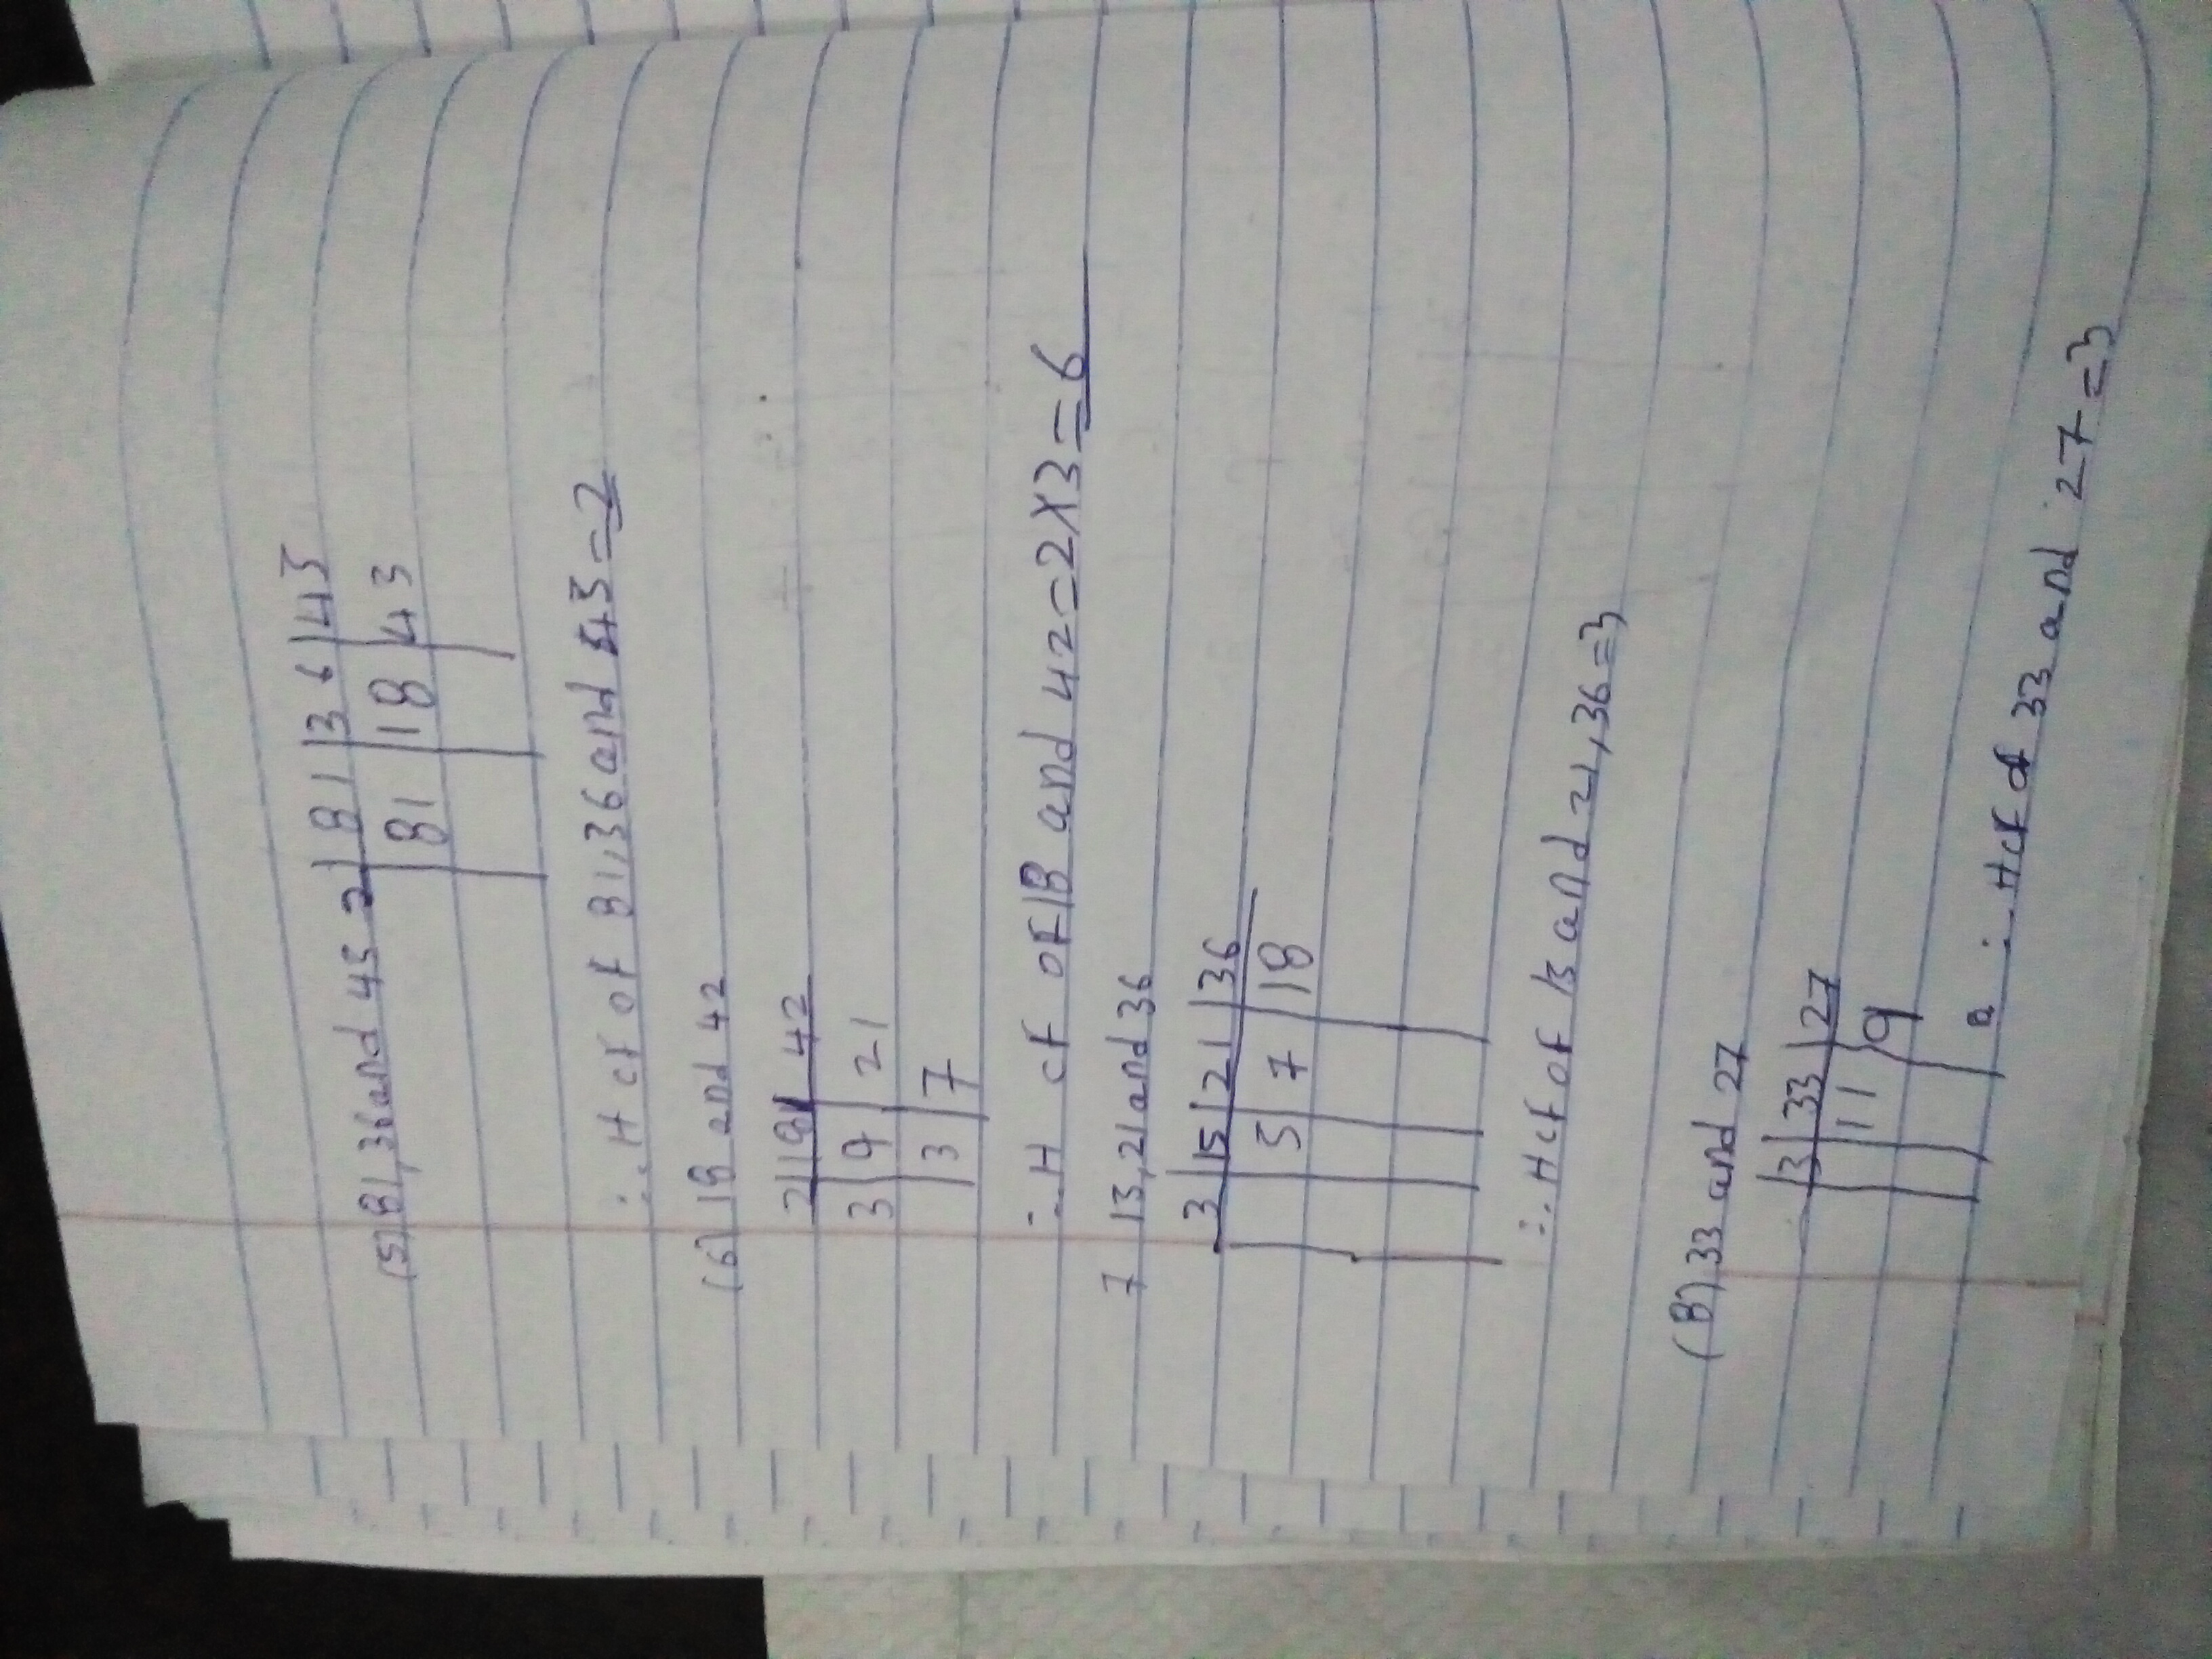 (5) 81,36 and 45 2 | 81 | 36 | 45
81 | 18 | 43
∴ H CF of 81,36 and 45 = 2
(6) 18 and 42
2 | 18 | 42
3 | 9 | 21
| 3 | 7
∴ H CF OF 18 and 42 = 2X3 = 6
7 15,21 and 36
3 | 15 | 21 | 36
5 | 7 | 18
∴ HCF OF 15 and 21,36 = 3
(8) 33 and 27
| 3 | 33 | 27
11 | 9
∴ HCF of 33 and 27 = 3